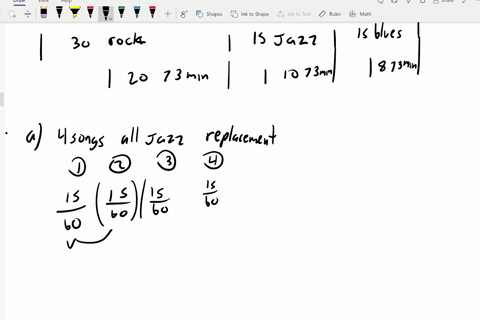 Shapes Ink to Shape Ink to Text Ruler Math
30 rock 15 Jazz 15 blues
20 ⩾3min 10 ⩾3min 8 ⩾3min
a) 4 songs all Jazz replacement
① ② ③ ④
15/60 (15/60) (15/60 15/60